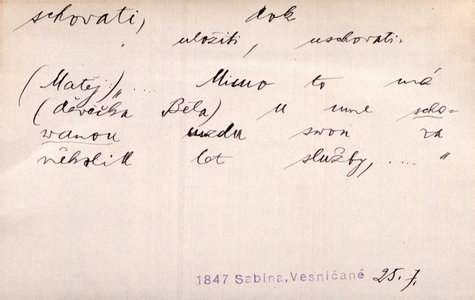 schovati, dok
uložiti, uschovati.
(Matěj:)„.... Mimo to má
(děvečka Běla) u mne scho-
wanou mzdu swou za
několik let služby, .... "
1847 Sabina, Vesničané 25. 7.